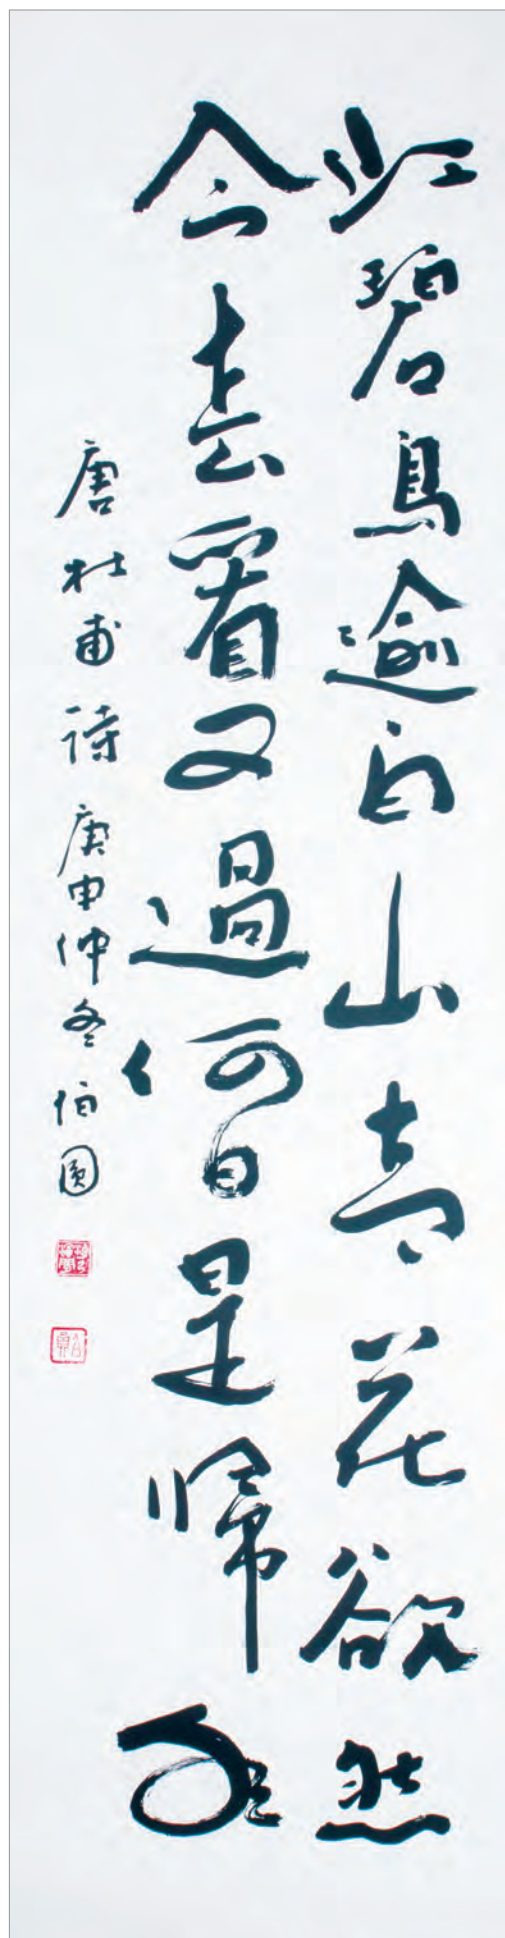 江碧鳥逾白山青花欲然
今春看又過何日是歸年
唐杜甫詩庚申仲冬伯圓